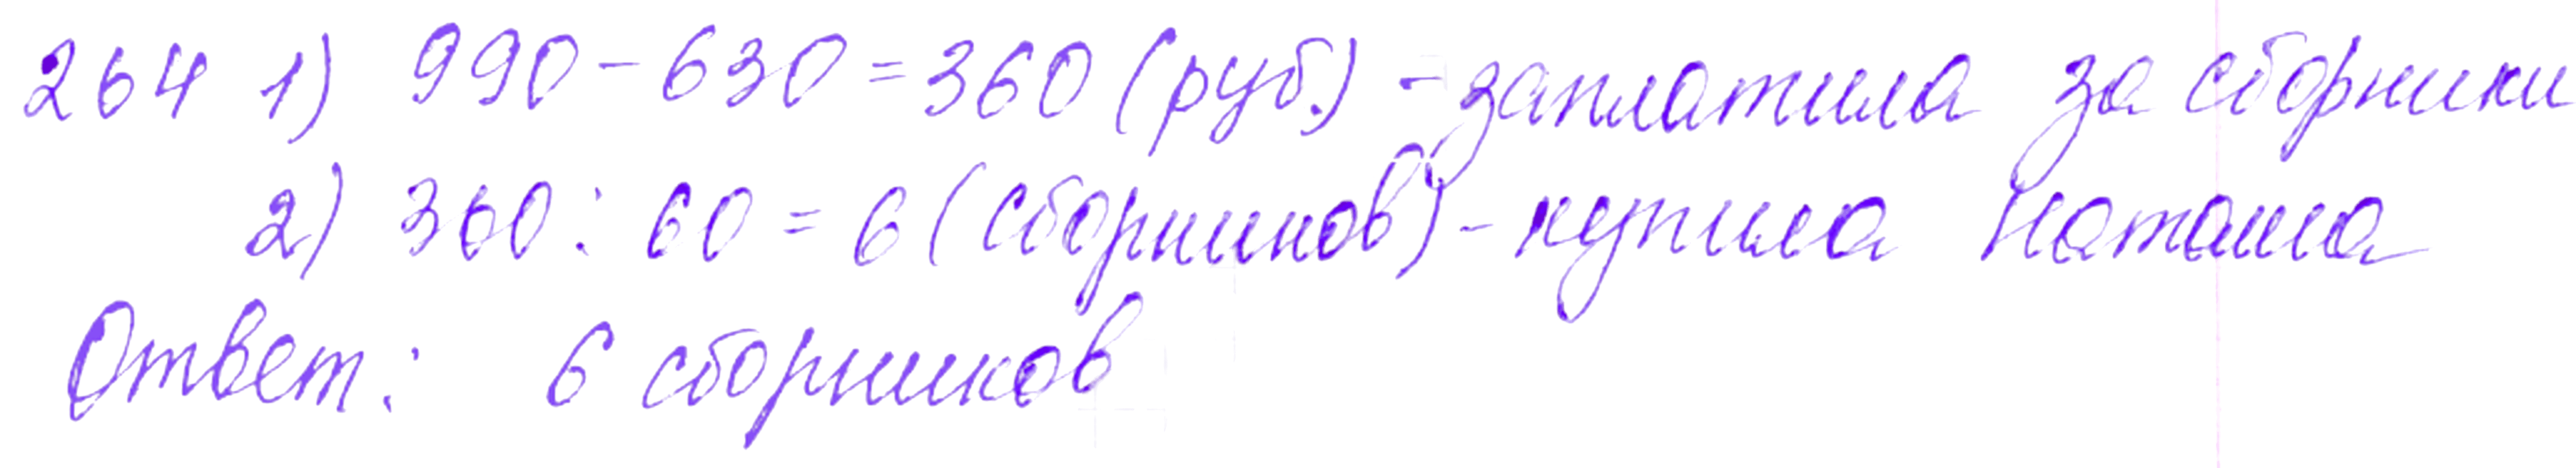 264 1) 990-630=360 (руб.) - заплатила за сборники
2) 360 : 60 = 6 (сборников) - купила Наташа
Ответ: 6 сборников